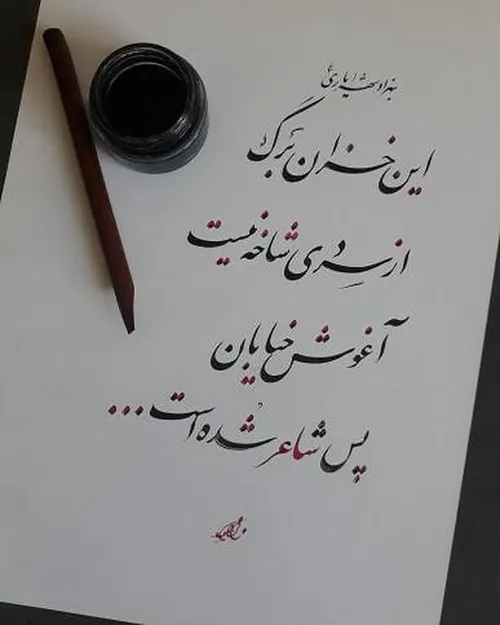 بهزاد شهریاری
این خزان برگ
از سردی شاخه نیست
آغوش خیابان
پس شاعر شده است...